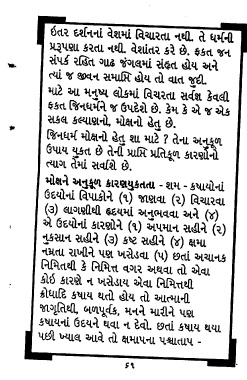 ઇતર દર્શનનાં વેશમાં વિચારતા નથી. તે ધર્મની
પ્રરૂપણા કરતા નથી. વેશાંતર કરે છે. ફકત જન
સંપર્ક રહિત ગાઢ જંગલમાં સંહૃત હોય અને
ત્યાં જ જીવન સમાપ્તિ હોય તો વાત જુદી.
માટે આ મનુષ્ય લોકમાં વિચરતા સર્વજ્ઞ કેવલી
ફકત જિનધર્મને જ ઉપદેશે છે. કેમ કે એ જ એક
સકલ કલ્યાણનો, મોક્ષનો હેતુ છે.
જિનધર્મ મોક્ષનો હેતુ શા માટે ? તેના અનુકૂળ
ઉપાય યુકત છે તેની પ્રાપ્તિ પ્રતિકૂળ કારણોનો
ત્યાગ તેમાં સર્વાશે છે.
મોક્ષને અનુકૂળ કારણયુકતતા - શમ - કષાયોનાં
ઉદયોનાં વિપાકોને (૧) જાણવા (૨) વિચારવા
(૩) લાગણીથી હૃદયમાં અનુભવવા અને (૪)
એ ઉદયોનાં કારણોને (૧) અપમાન સહીને (૨)
નુકસાન સહીને (૩) કષ્ટ સહીને (૪) ક્ષમા
નમ્રતા રાખીને પણ ખસેડવા (૫) છતાં અચાનક
નિમિત્તથી કે નિમિત્ત વગર અથવા તો એવા
કોઇ કારણે ન ખસેડાય એવા નિમિત્તથી
ક્રોધાદિ કષાય થતો હોય તો આત્માની
જાગૃતિથી, બળપૂર્વક, મનને મારીને પણ
કષાયનાં ઉદયને થવા ન દેવો. છતાં કષાય થયા
પછી ખ્યાલ આવે તો ક્ષમાપના પશ્ચાતાપ -
૬૧